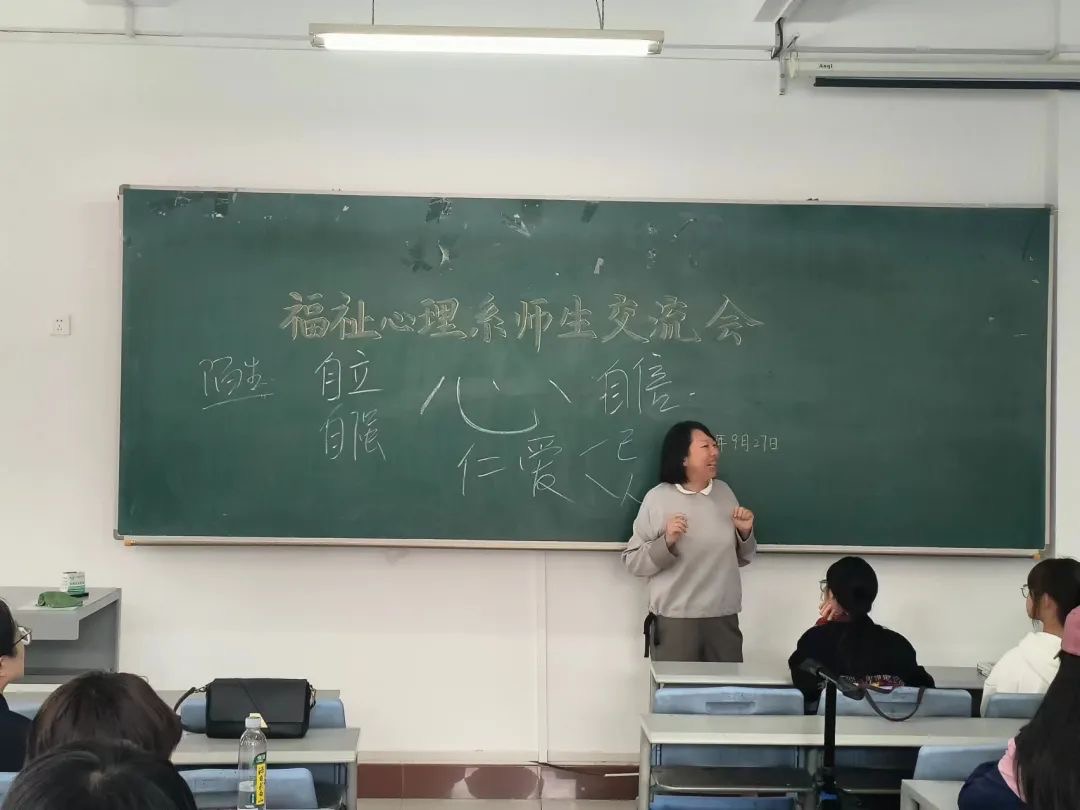 Anql
福祉心理系师生交流会
陌生 自立 心 自信
自强
仁爱 己
年9月27日